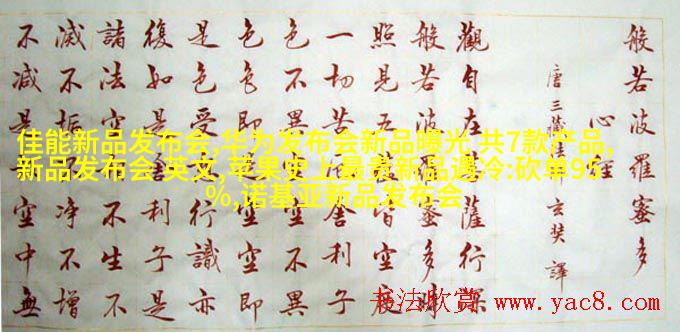 般若波羅蜜多
心經
唐三藏師玄奘譯
觀自在薩行深
般若波蜜多時
照見五皆空度
一切苦舍利子
色不異空不異
色色即空空即
是色受行識亦
復如是利子是
諸法空不生不
滅不垢淨不增
不減是空中無
佳能新品发布会,华为发布会新品曝光,共7款产品,
新品发布会 英文,苹果史上最贵新品遇冷:砍单95
%,诺基亚新品发布会
书法欣赏 www.yac8.com